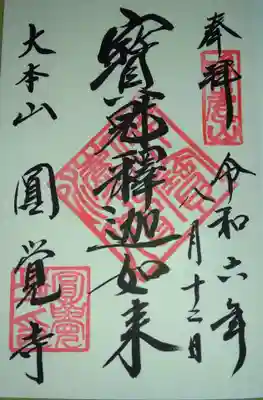 奉拝
令和六年
八月十二日
寳冠釋迦如来
大本山
圓覺寺